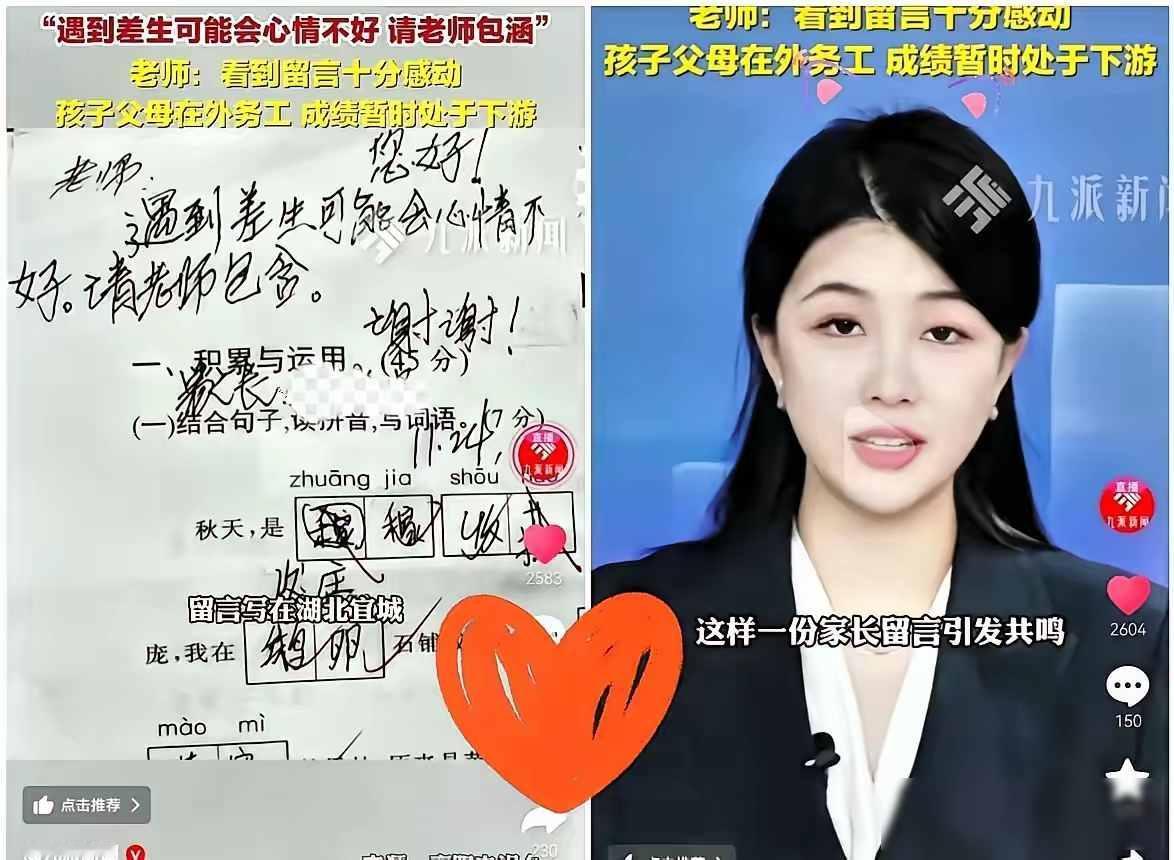 “遇到差生可能会心情不好 请老师包涵”
老师：看到留言十分感动
孩子父母在外务工 成绩暂时处于下游
老师：
您好！
遇到差生可能会心情不
好。请老师包含。
谢谢！
一、积累与运用。(45分)
家长：
(一)结合句子,读拼音,写词语。(7分)
11.24
zhuāng jia shōu
秋天,是
稼 收
留言写在湖北宜城
庞,我在
鹅卵
石铺
mào mì
九派新闻
直播
九派新闻
2583
点击推荐
230
老师：看到留言十分感动
孩子父母在外务工 成绩暂时处于下游
九派新闻
直播
九派新闻
这样一份家长留言引发共鸣
2604
150